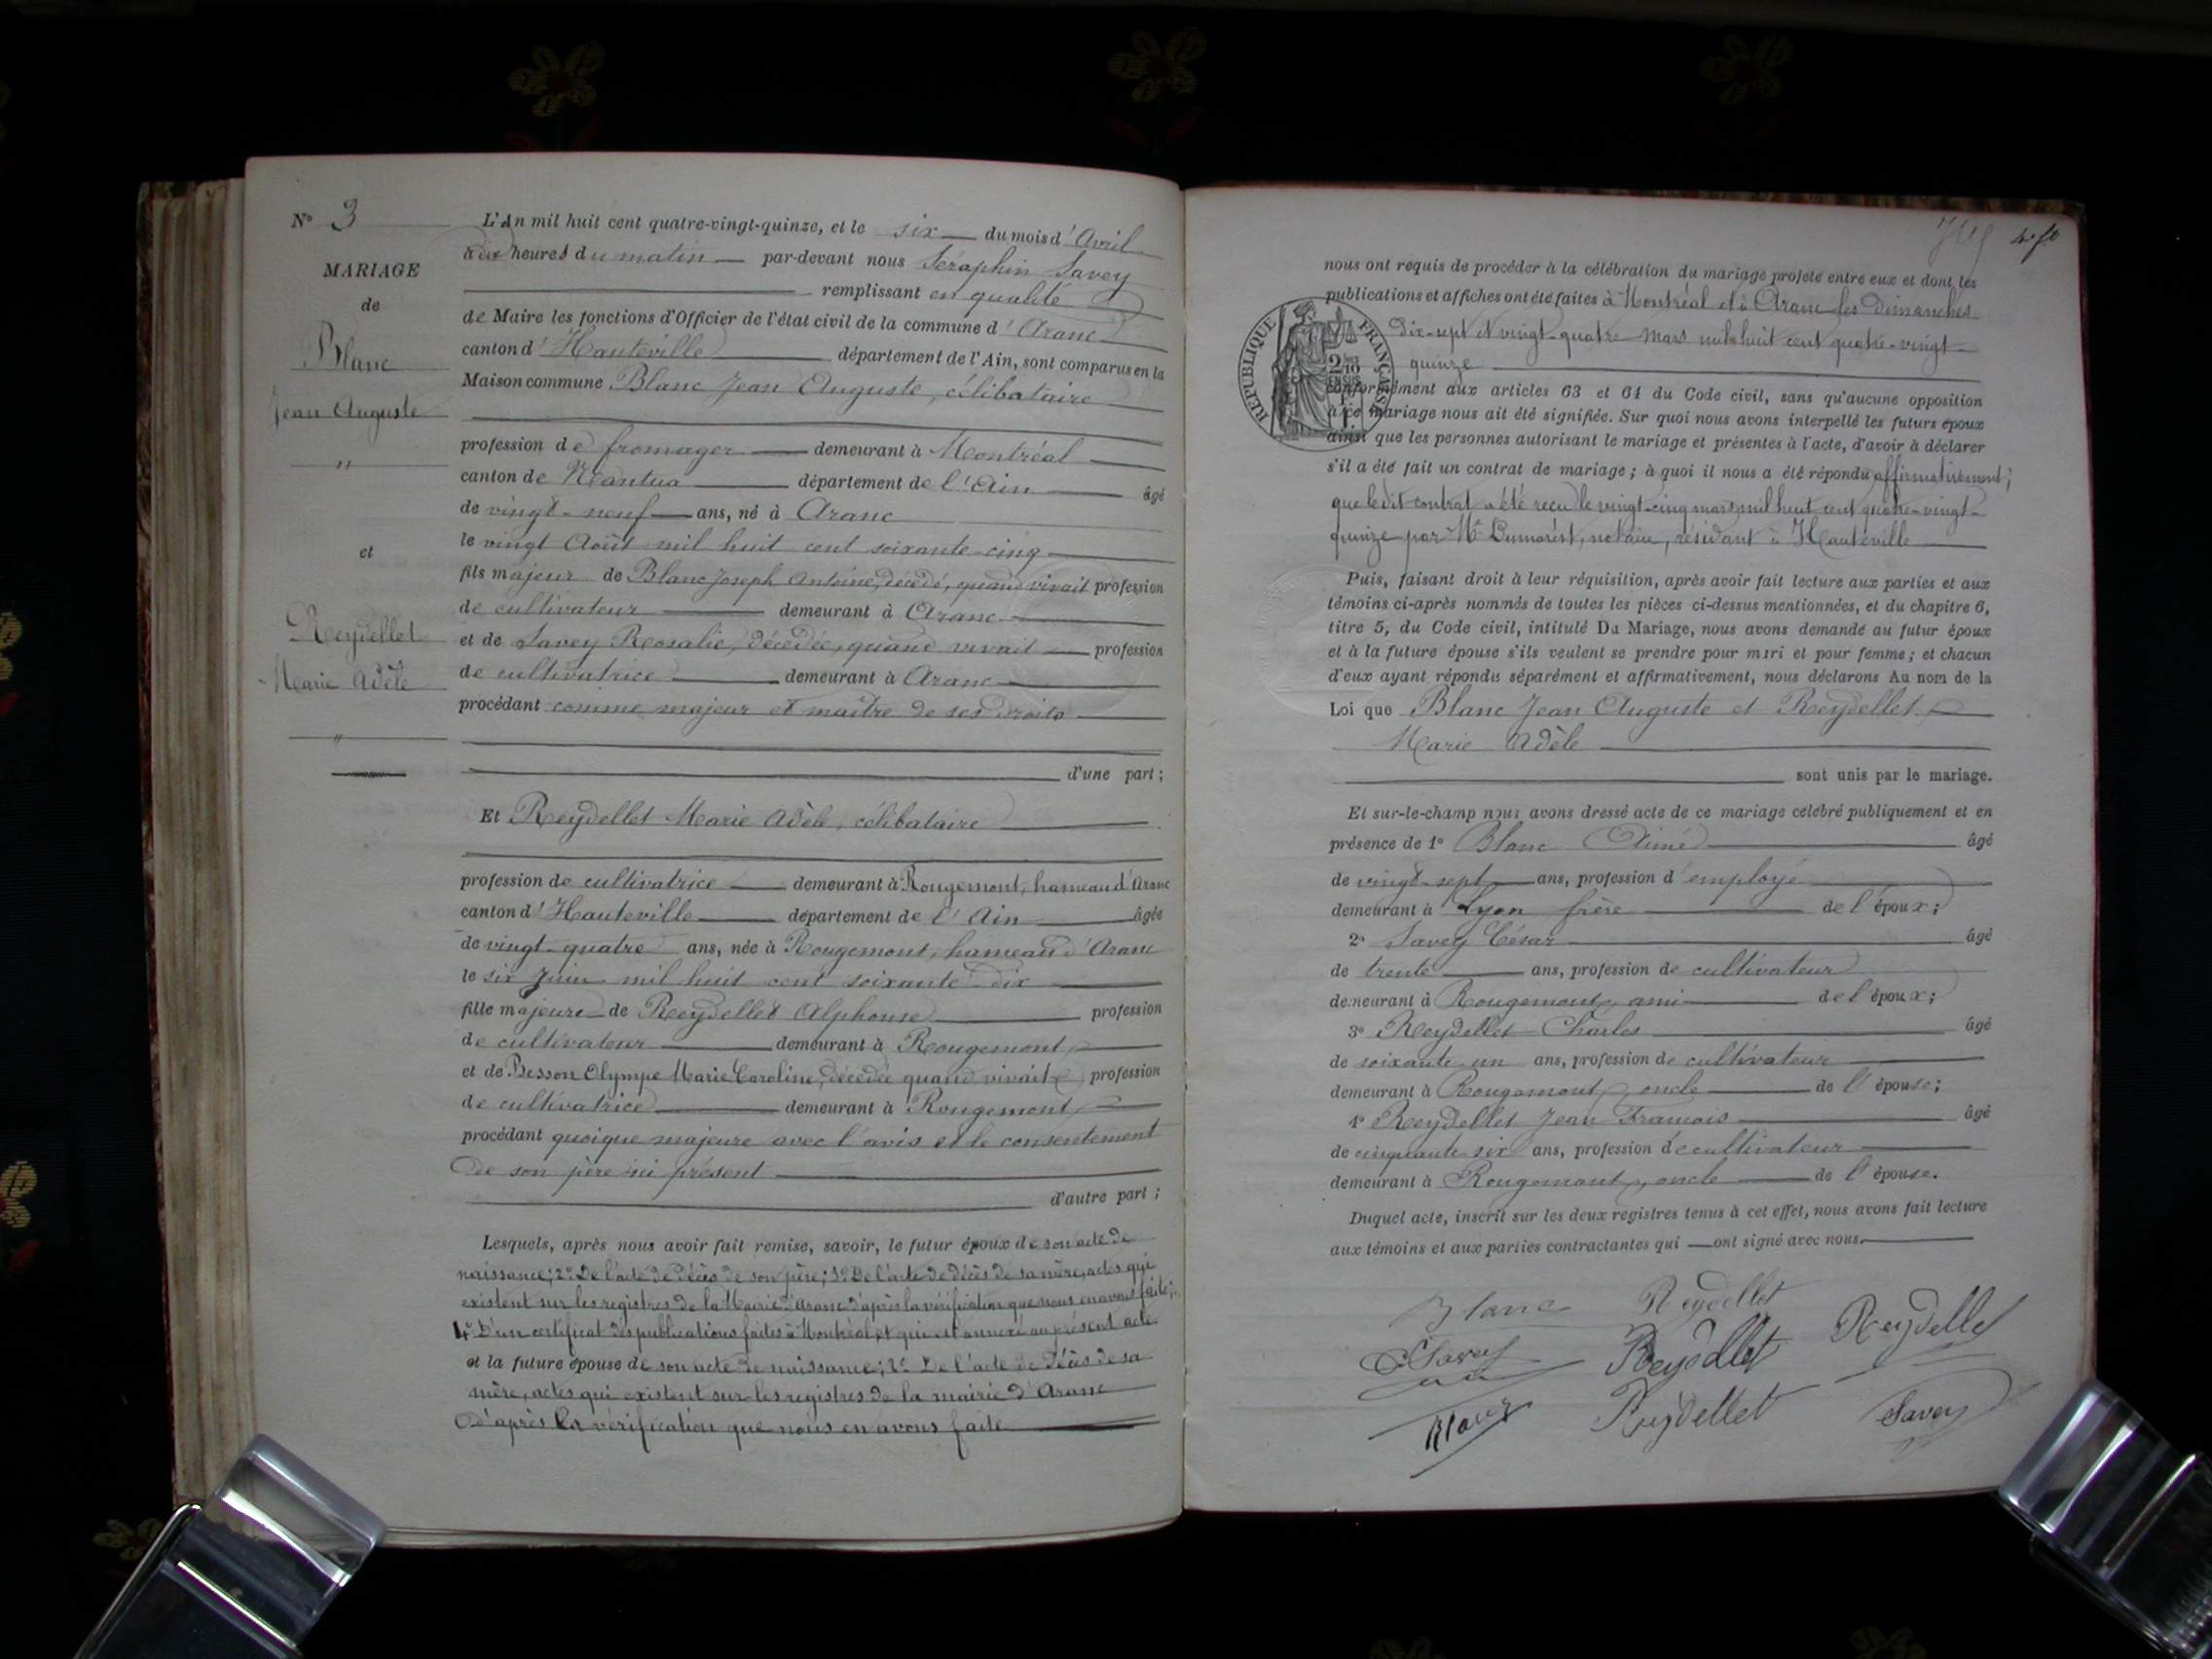 N° 3
MARIAGE
de
Blanc
Jean Auguste
"
et
Reydellet
Marie Adèle
"
L'An mil huit cent quatre-vingt-quinze, et le six du mois d'Avril
à dix heures du matin par-devant nous Séraphin Savey
remplissant en qualité
de Maire les fonctions d'Officier de l'état civil de la commune d'Aranc
canton d'Hauteville département de l'Ain, sont comparus en la
Maison commune Blanc Jean Auguste, célibataire
profession de fromager demeurant à Montréal
canton de Nantua département de l'Ain âgé
de vingt-neuf ans, né à Aranc
le vingt Août mil huit cent soixante-cinq
fils majeur de Blanc Joseph Antoine, décédé, quand vivait profession
de cultivateur demeurant à Aranc
et de Savey Rosalie, décédée, quand vivait profession
de cultivatrice demeurant à Aranc
procédant comme majeur et maître de ses droits
d'une part ;
Et Reydellet Marie Adèle, célibataire
profession de cultivatrice demeurant à Rougemont, hameau d'Aranc
canton d'Hauteville département de l'Ain âgée
de vingt-quatre ans, née à Rougemont, hameau d'Aranc
le six Juin mil huit cent soixante-dix
fille majeure de Reydellet Alphonse profession
de cultivateur demeurant à Rougemont
et de Besson Olympe Marie Caroline, décédée quand vivait profession
de cultivatrice demeurant à Rougemont
procédant quoique majeure avec l'avis et le consentement
de son père ici présent
d'autre part ;
Lesquels, après nous avoir fait remise, savoir, le futur époux de son acte de
naissance ; 2° De l'acte de décès de son père ; 3° De l'acte de décès de sa mère, actes qui
existent sur les registres de la Mairie d'Aranc d'après la vérification que nous en avons faite ;
4° D'un certificat des publications faites à Montréal et qui est annexé au présent acte
et la future épouse de son acte de naissance ; 2° De l'acte de décès de sa
mère, actes qui existent sur les registres de la mairie d'Aranc
d'après la vérification que nous en avons faite
nous ont requis de procéder à la célébration du mariage projeté entre eux et dont les
publications et affiches ont été faites à Montréal et à Aranc les dimanches
dix-sept et vingt-quatre mars mil huit cent quatre-vingt-
quinze
RÉPUBLIQUE FRANÇAISE
conformément aux articles 63 et 64 du Code civil, sans qu'aucune opposition
à ce mariage nous ait été signifiée. Sur quoi nous avons interpellé les futurs époux
ainsi que les personnes autorisant le mariage et présentes à l'acte, d'avoir à déclarer
s'il a été fait un contrat de mariage ; à quoi il nous a été répondu affirmativement ;
que le dit contrat a été reçu le vingt-cinq mars mil huit cent quatre-vingt-
quinze par Me Dumarest, notaire, résidant à Hauteville
Puis, faisant droit à leur réquisition, après avoir fait lecture aux parties et aux
témoins ci-après nommés de toutes les pièces ci-dessus mentionnées, et du chapitre 6,
titre 5, du Code civil, intitulé Du Mariage, nous avons demandé au futur époux
et à la future épouse s'ils veulent se prendre pour mari et pour femme ; et chacun
d'eux ayant répondu séparément et affirmativement, nous déclarons Au nom de la
Loi que Blanc Jean Auguste et Reydellet
Marie Adèle
sont unis par le mariage.
Et sur-le-champ nous avons dressé acte de ce mariage célébré publiquement et en
présence de 1° Blanc Aimé âgé
de vingt-sept ans, profession d'employé
demeurant à Lyon frère de l'époux ;
2° Savey César âgé
de trente ans, profession de cultivateur
demeurant à Rougemont, ami de l'époux ;
3° Reydellet Charles âgé
de soixante-un ans, profession de cultivateur
demeurant à Rougemont, oncle de l'épouse ;
4° Reydellet Jean François âgé
de cinquante-six ans, profession de cultivateur
demeurant à Rougemont, oncle de l'épouse.
Duquel acte, inscrit sur les deux registres tenus à cet effet, nous avons fait lecture
aux témoins et aux parties contractantes qui ont signé avec nous.
Blanc Reydellet
Reydellet
C Savey Reydellet
Blanc Reydellet Savey